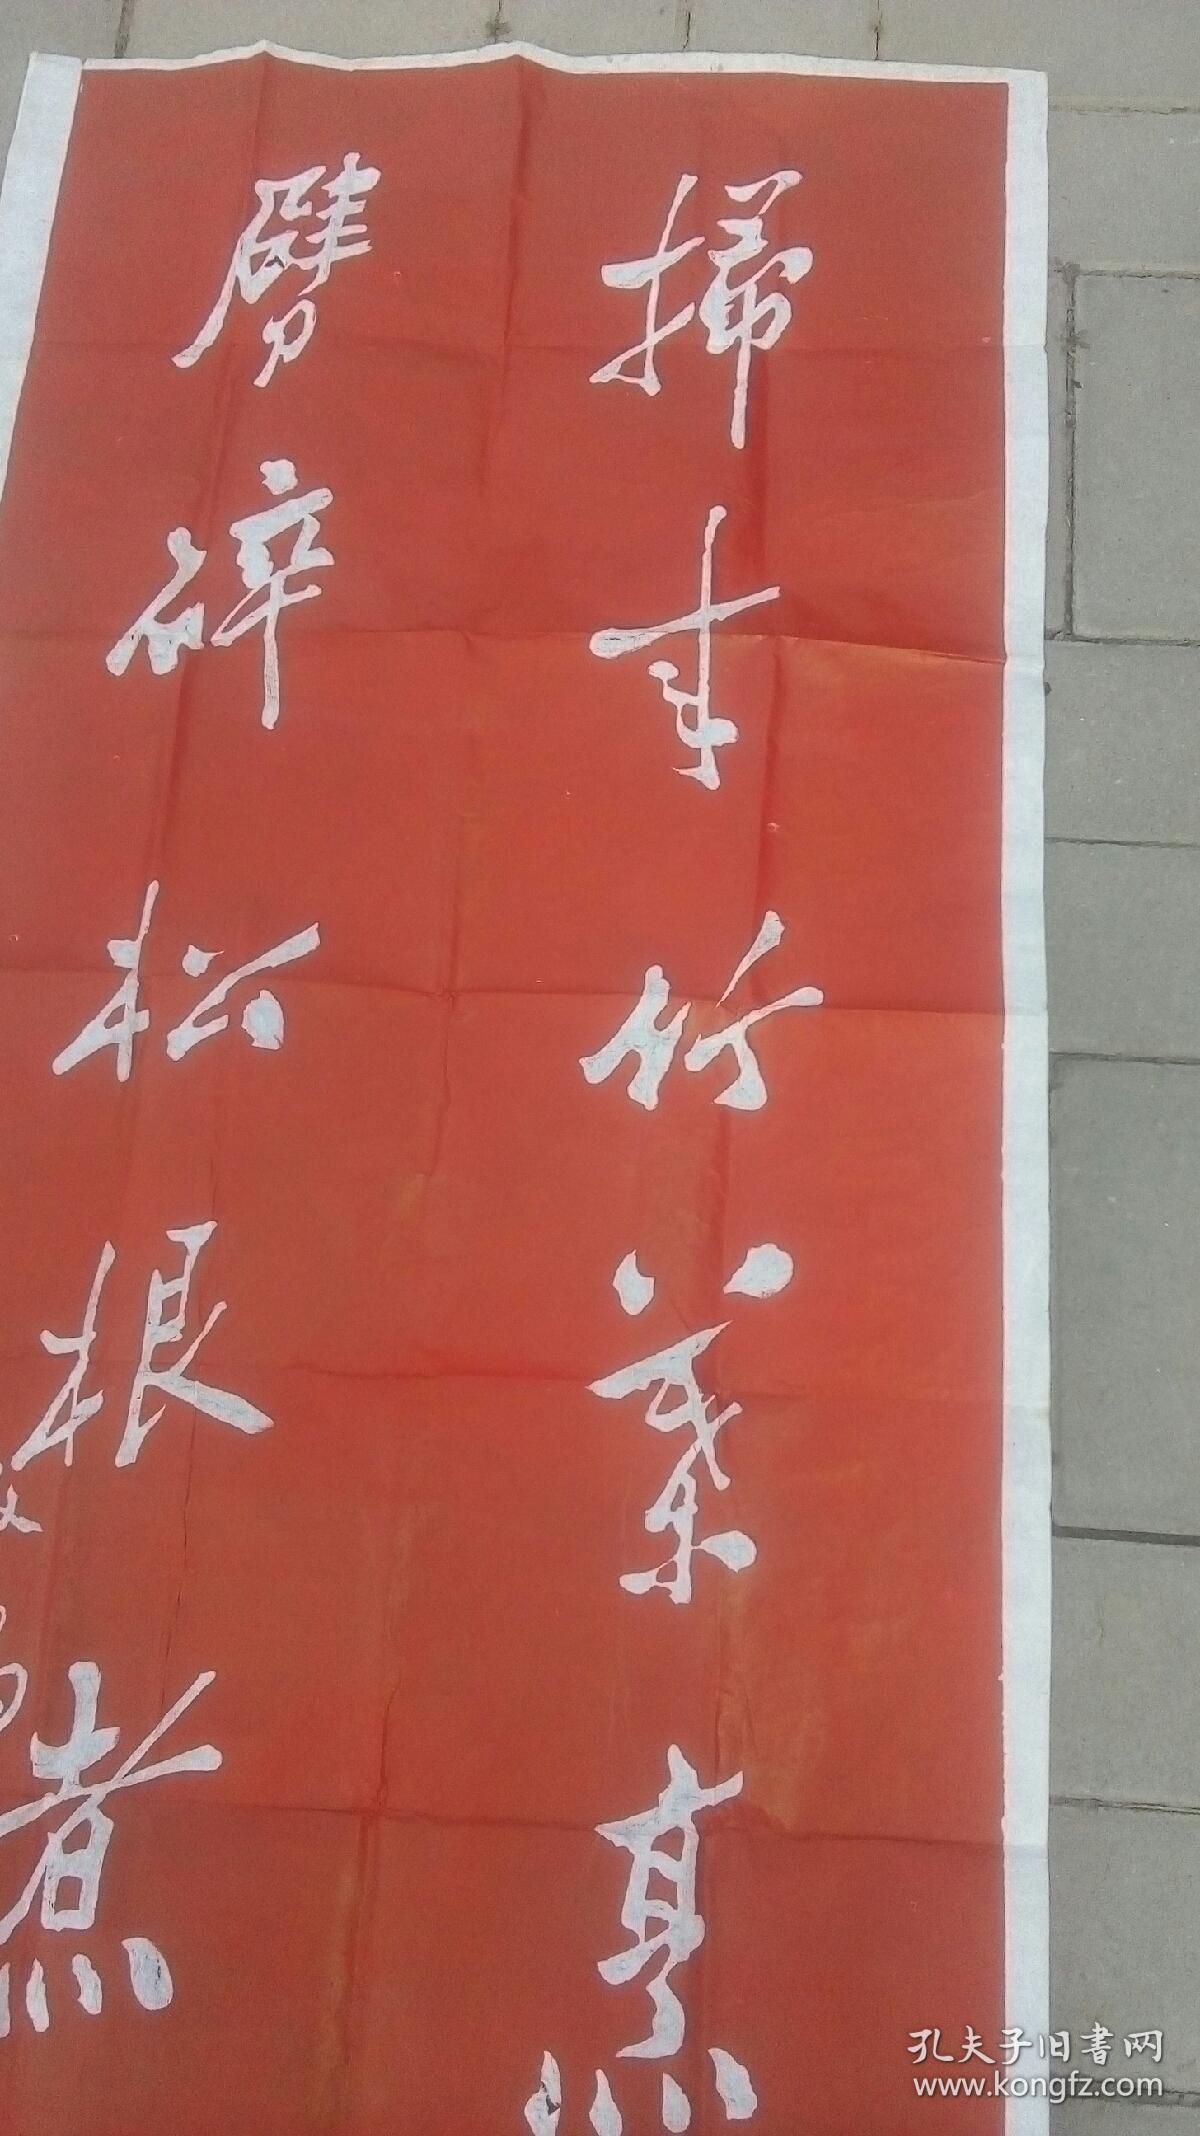 掃来竹葉烹
劈碎松根煮
孔夫子旧書网
www.kongfz.com